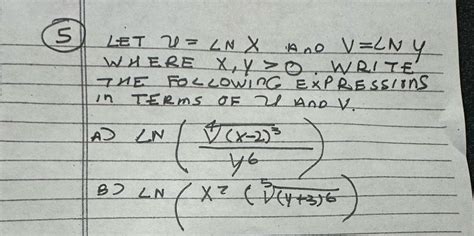 5 LET U = LN X AND V = LN Y
WHERE X, Y > 0. WRITE
THE FOLLOWING EXPRESSIONS
IN TERMS OF U AND V.
A) LN ( ∜(X-2)³ / Y⁶ )
B) LN ( X² ( ⁵√(Y+3)⁶ )